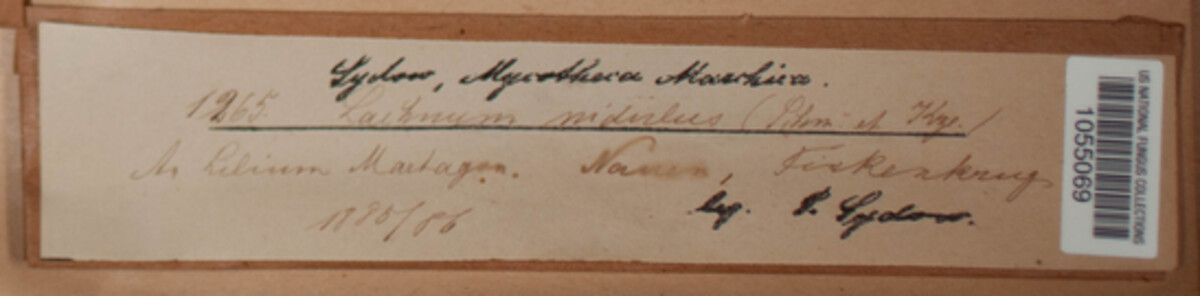 Sydow, Mycotheca Marchica.
1265. Lachnum nidulus (Schm. et Kze.)
An Lilium Martagon. Nauen, Finkenkrug
1885/86
leg. P. Sydow.
US NATIONAL FUNGUS COLLECTIONS
1055069